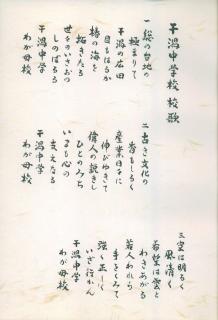 干潟中学校 校歌
一 総の台地の
極まりて
干潟の広田
目もはるか
椿の海を
拓きたる
世々のいさおの
しのばるる
干潟中学
わが母校
二 古き文化の
香もしるく
産業日々に
伸びゆきて
偉人の説きし
ひとのみち
いまも心の
支えなる
干潟中学
わが母校
三 空は明るく
風清く
希望は雲と
わきあがる
若人われら
手をとりて
強く正しく
いざ行かん
干潟中学
わが母校